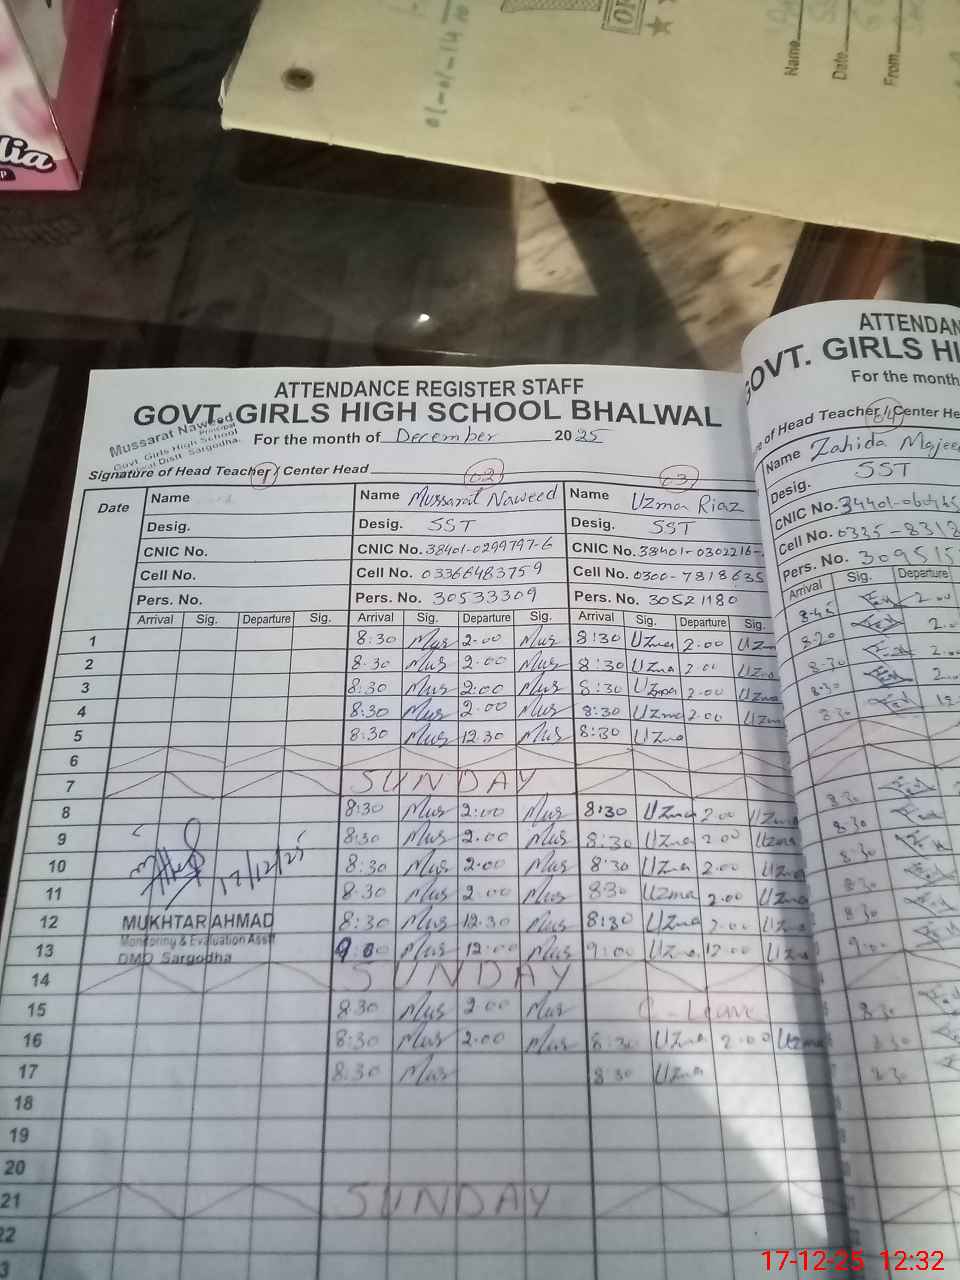 lia
Name
Date
From
ATTENDANCE REGISTER STAFF
GOVT. GIRLS HIGH SCHOOL BHALWAL
Mussarat Naweed
Principal
Govt Girls High School
Distt. Sargodha.
For the month of December 2025
Signature of Head Teacher / Center Head
02 03
Date Name Name Mussarat Naweed Name Uzma Riaz
Desig. Desig. SST Desig. SST
CNIC No. CNIC No. 38401-0299797-6 CNIC No. 38401-0302216-
Cell No. Cell No. 03366483759 Cell No. 0300-7818635
Pers. No. Pers. No. 30533309 Pers. No. 30521180
Arrival Sig. Departure Sig. Arrival Sig. Departure Sig. Arrival Sig. Departure Sig.
1 8:30 Mus 2:00 Mus 8:30 Uzma 2:00 Uzm
2 8:30 Mus 2:00 Mus 8:30 Uzma 2:00 Uzma
3 8:30 Mus 2:00 Mus 8:30 Uzma 2:00 Uzma
4 8:30 Mus 2:00 Mus 8:30 Uzma 2:00 Uzm
5 8:30 Mus 12:30 Mus 8:30 Uzma
6
7 SUNDAY
8 8:30 Mus 2:00 Mus 8:30 Uzma 2:00 Uzma
9 8:30 Mus 2:00 Mus 8:30 Uzma 2:00 Uzma
10 8:30 Mus 2:00 Mus 8:30 Uzma 2:00 Uzma
11 12/12/25 8:30 Mus 2:00 Mus 8:30 Uzma 2:00 Uzma
12 MUKHTAR AHMAD 8:30 Mus 12:30 Mus 8:30 Uzma 2:00 Uzma
Monitoring & Evaluation Asstt
13 DMO Sargodha 9:00 Mus 12:00 Mus 9:00 Uzma 12:00 Uzma
14 SUNDAY
15 8:30 Mus 2:00 Mus C-Leave
16 8:30 Mus 2:00 Mus 8:30 Uzma 2:00 Uzma
17 8:30 Mus 8:30 Uzma
18
19
20
21 SUNDAY
22
3
ATTENDAN
GOVT. GIRLS HI
For the month
e of Head Teacher / Center He
04
Name Zahida Majee
Desig. SST
CNIC No. 34401-
Cell No. 0335-8318
Pers. No. 309515
Arrival Sig. Departure
8:45 2:00
8:20 2:0
8:30 2:0
8:30 2:
8:30 12:
8:30
8:30
8:30
8:30
8:30
9:00
8:30
8:30
8:30
17-12-25 12:32